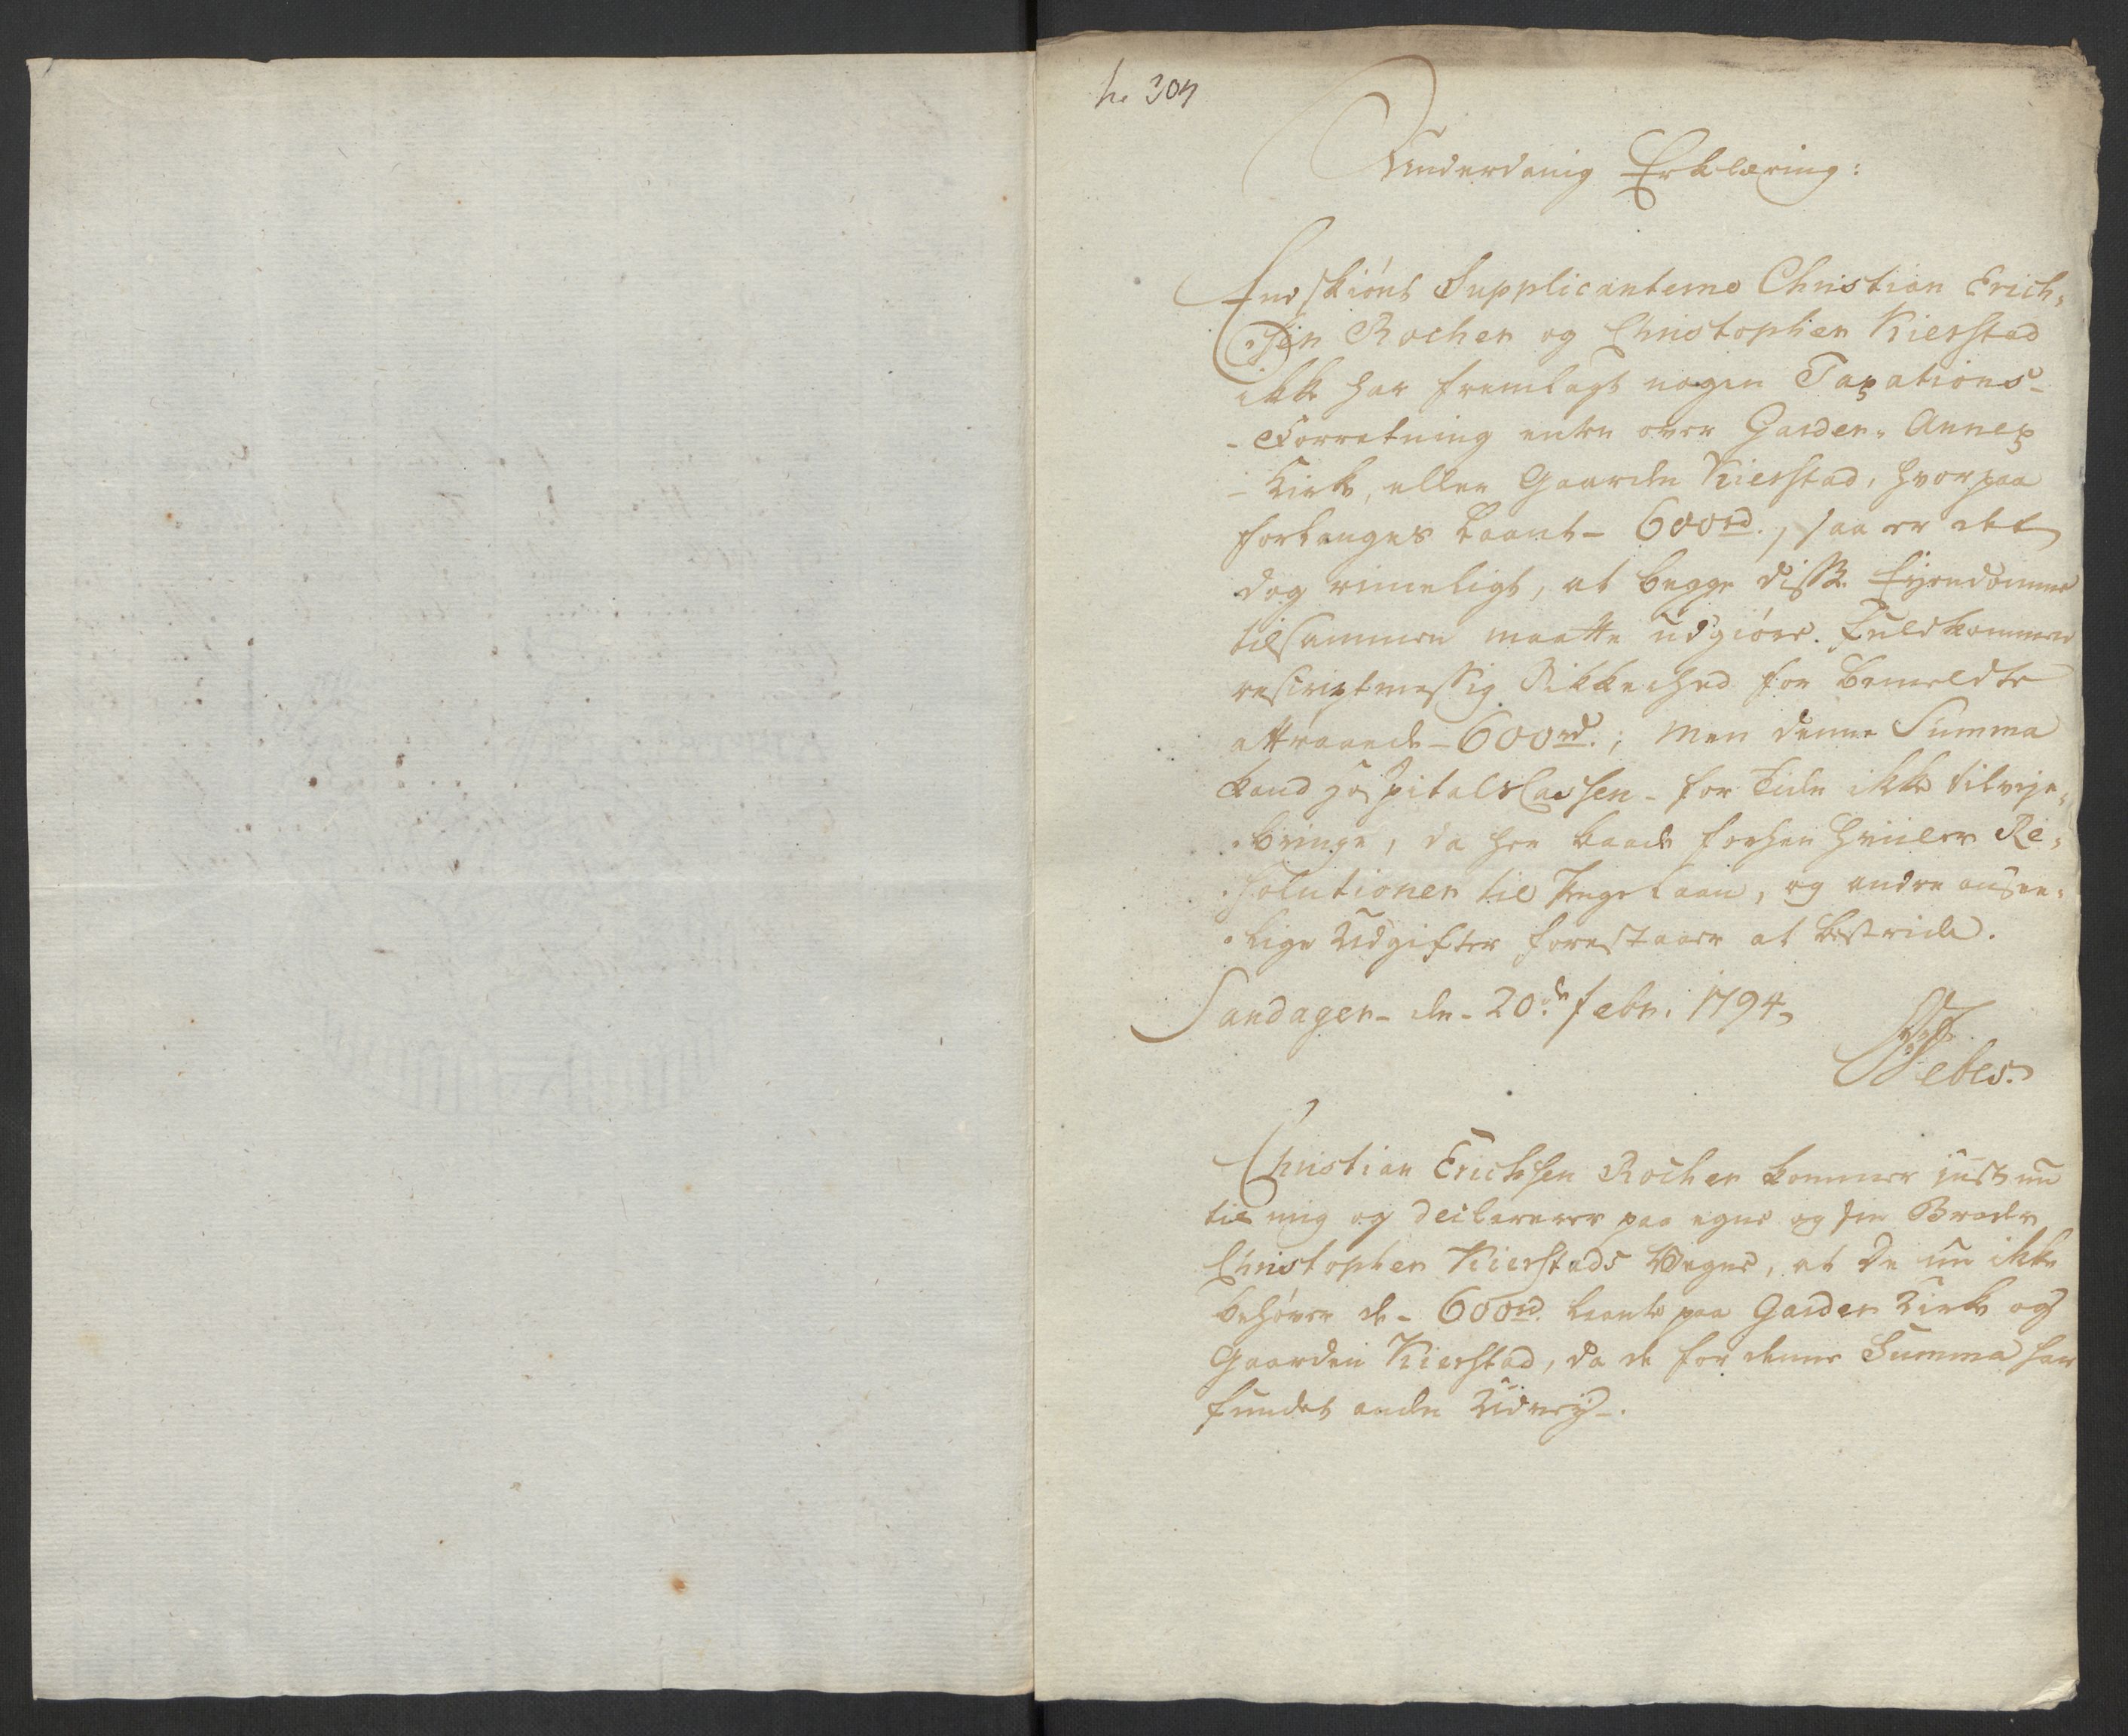 No 307
Underdanig Erklæring:
Endskiønt Supplicanterne Christian Erich-
-sen Rocher og Christopher Kierstad
ikke har fremlagt nogen Taxations-
-Forretning enten over Garder-Annex
-Kirke, eller Gaarden Kierstad, hvorpaa
forlanges laant - 600rd., saa er det
dog rimeligt, at begge disse Eyendomme
tilsammen maatte udgiøre fuldkommen
rescriptmessig Sikkerhed for bemeldte
attraaede - 600rd.; Men denne Summa
kand Hospitals Cassen - for Tiden ikke tilveje-
-bringe, da her baade forhen hviiler Re-
-solutioner til Penge Laan, og andre ansee-
-lige Udgifter forestaaer at bestride.
Sandager - den - 20de febr. 1794
Debes.
Christian Erichsen Rocher kommer just nu
til mig og declarerer paa egne og sin Broder
Christopher Kierstads Vegne, at De nu ikke
behøver de - 600rd. laante paa Garder Kirke og
Gaarden Kierstad, da de for denne Summa har
fundet anden Udvej.